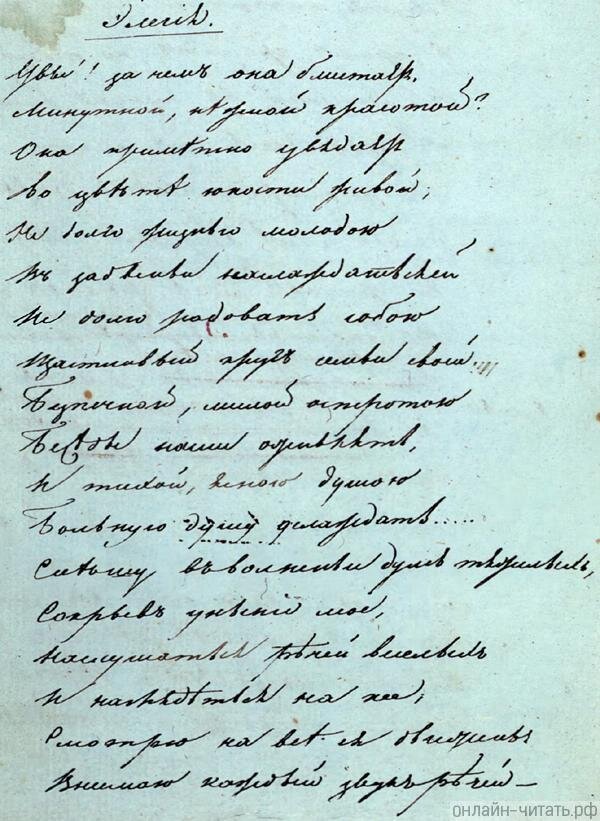 Элегія.
Увы! за чемъ она блистаетъ
Минутной, нѣжной красотой?
Она примѣтно увядаетъ
Во цвѣтѣ юности живой;
Не долго жизнью молодою
Ей наслаждаться
Не долго радовать собою
Щастливый кругъ семьи своей
Безпечной, милой остротою
Бесѣды наши оживлять,
И тихой, ясною душою
Больную душу услаждать.....
Спѣшу въ волненьи думъ тяжелыхъ,
Сокрывъ уныніе мое,
Наслушаться рѣчей веселыхъ
И наглядѣться на нее;
Смотрю на всѣ ея движенья
Внимаю каждый звукъ рѣчей —
онлайн-читать.рф